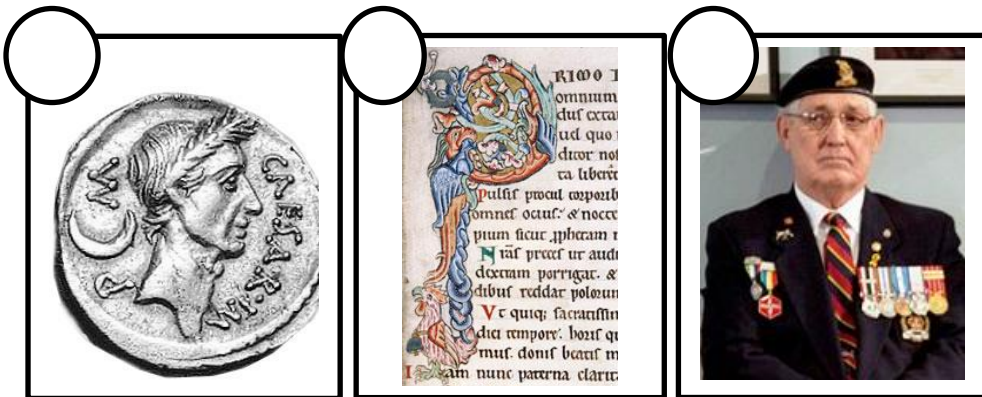 CAESAR·IM
P M
PRIMO
omnium
dus extat
uel quo
ditor nos
ta liberet
Pulsis procul corporib
omnes ocius. & nocte
pium sicut ppheram
Nras preces ut audi
dexteram porrigat. &
dibus reddat polorum
Vt quiq; sacratissim
diei tempore. horis qu
mus. donis beatis m
Iam nunc paterna clarit